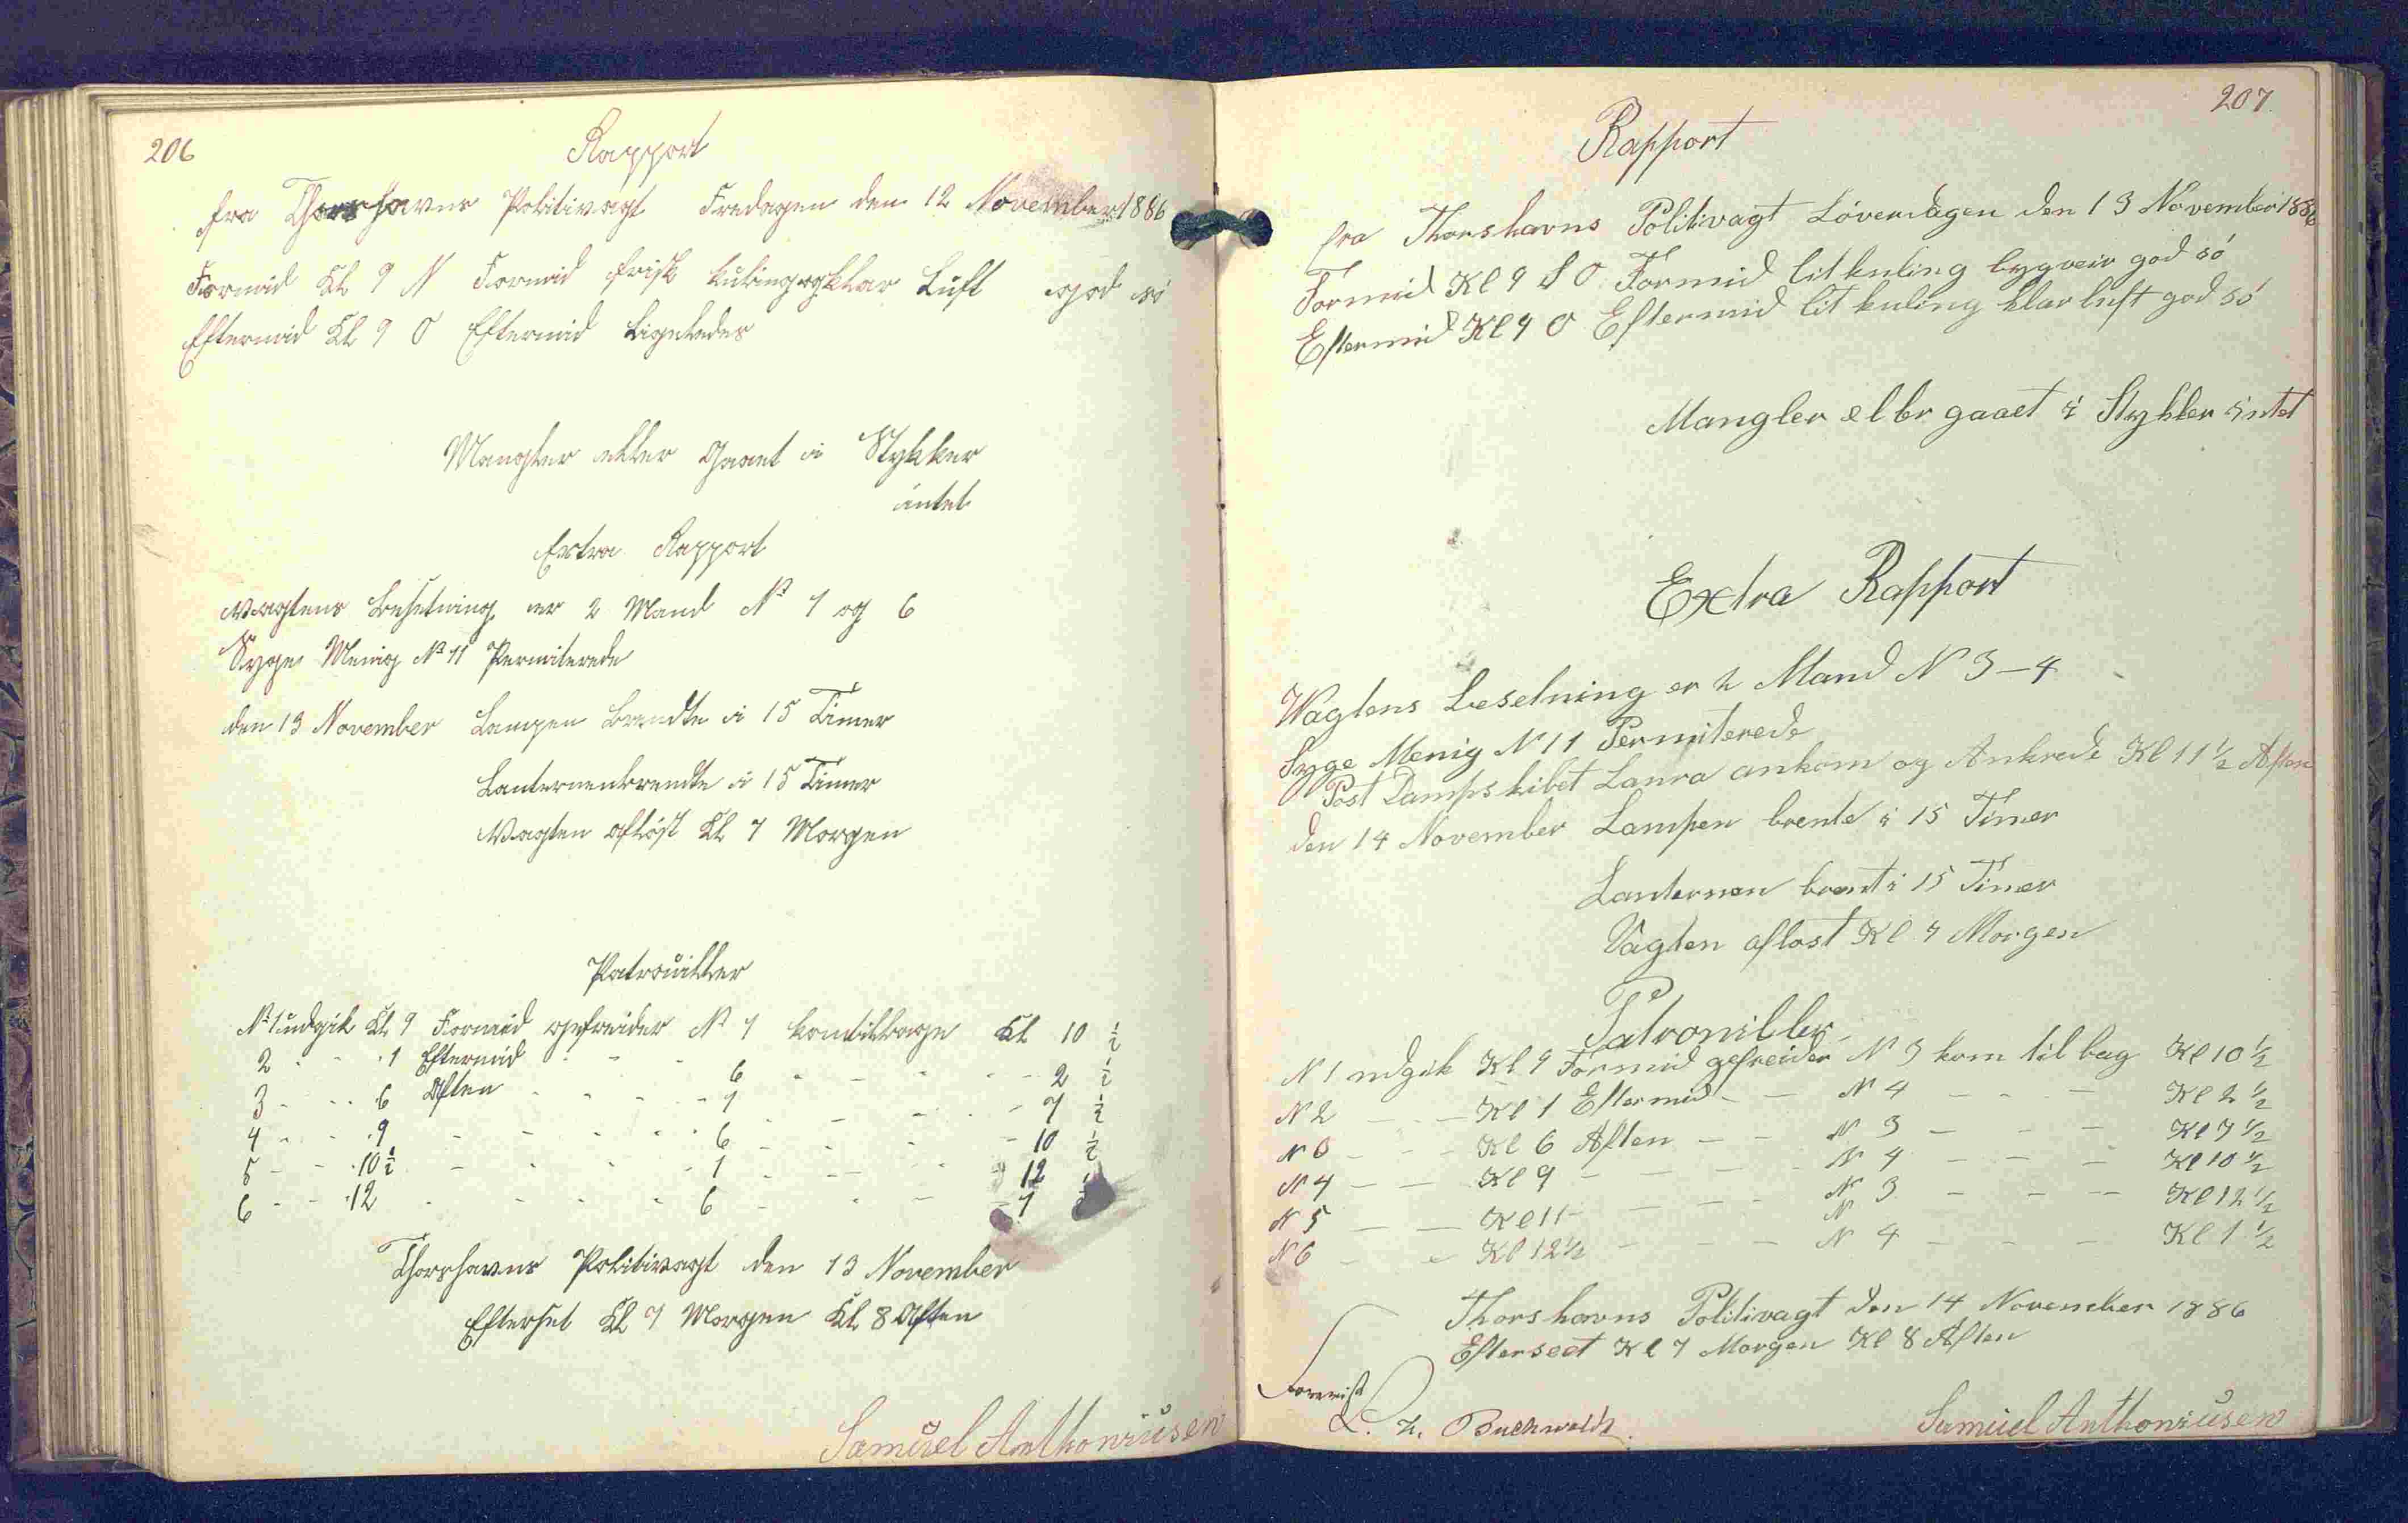 206
Rapport
fra Thorshavns Politivagt Fredagen den 12 November 1886
Formid Kl 9 N Formid frisk kuling og klar Luft god só
Eftermid Kl 9 O Eftermid Ligeledes
Mangler eller Gaaet i Stykker
intet
Extra Rapport
Vagtens Besetning er 2 Mand No 1 og 6
Syge Menig No 11 Permiterede
den 13 November Lampen Brendte i 15 Timer
Lanternen brendte i 15 Timer
Vagten afløst Kl 7 Morgen
Patrouiller
No 1 udgik Kl 9 Formid gefreider No 1 kom tilbage Kl 10 ½
2 - - 1 Eftermid - - - 6 - - - 2 ½
3 - - 6 Aften - - - 1 - - - 7 ½
4 - - 9 - - - 6 - - - 10 ½
5 - - 10 ½ - - - 1 - - - 12
6 - - 12 - - - 6 - - - 1
Thorshavns Politivagt den 13 November
Efterset Kl 7 Morgen Kl 8 Aften
Samuel Anthoniusen
207
Rapport
fra Thorshavns Politivagt Lóverdagen den 13 November 1886
Formid Kl 9 S O Formid lit kuling bygveir god só
Eftermid Kl 9 O Eftermid lit kuling klar luft god só
Mangler eller gaaet i Stykker intet
Extra Rapport
Vagtens Besetning er 2 Mand N 3 - 4
Syge Menig N 11 Permiterede
Post Dampskibet Laura ankom og Ankrede Kl 11 ½ Aften
den 14 November Lampen brente i 15 Timer
Lanternen brent i 15 Timer
Vagten aflost Kl 7 Morgen
Patrouiller
N 1 udgik Kl 9 Formid gefreider N 3 kom til bag Kl 10 ½
N 2 - - Kl 1 Eftermid - - N 4 - - - Kl 2 ½
N 3 - - Kl 6 Aften - - N 3 - - - Kl 7 ½
N 4 - - Kl 9 - - - N 4 - - - Kl 10 ½
N 5 - - Kl 11 - - - N 3 - - - Kl 12 ½
N
N 6 - - Kl 12 ½ - - - N 4 - - - Kl 1 ½
Thorshavns Politivagt den 14 November 1886
Efterseet Kl 7 Morgen Kl 8 Aften
Forevist
Buchwaldt.
Samuel Anthoniusen